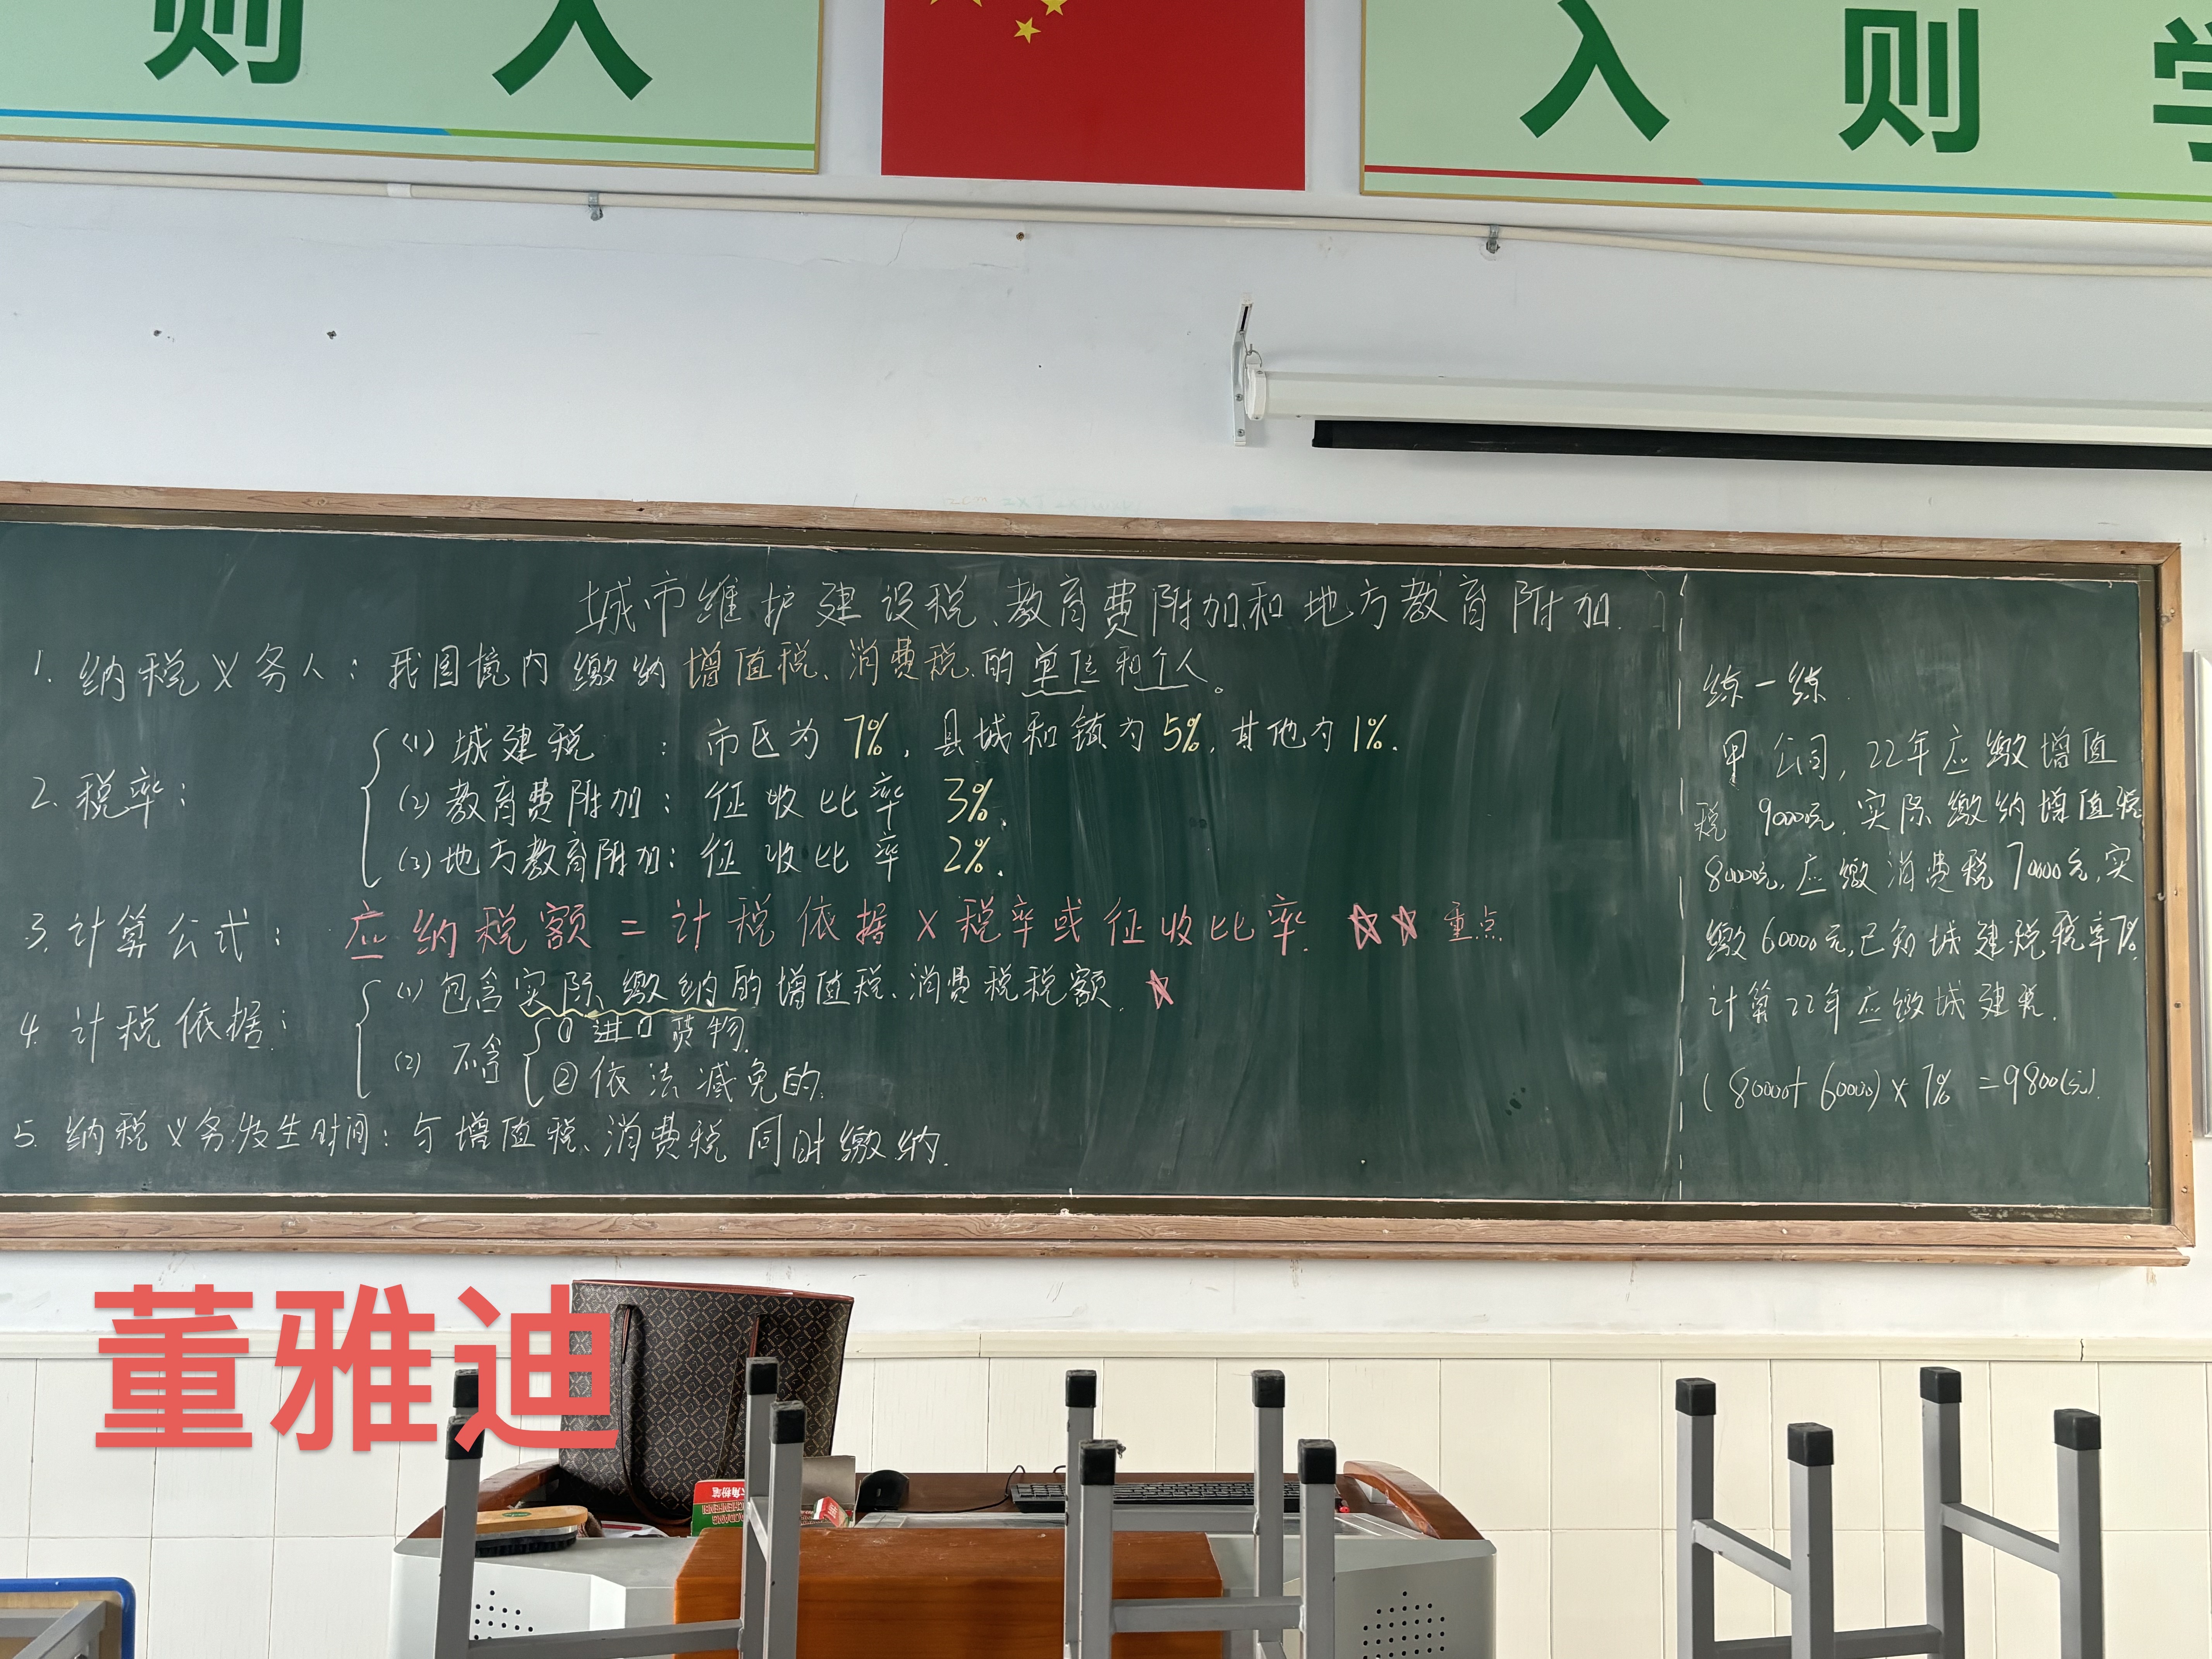 则 入
入 则 学
城市维护建设税、教育费附加和地方教育附加.
1. 纳税义务人：我国境内缴纳增值税、消费税.的单位和个人。
2. 税率：
(1) 城建税 ：市区为7%，县城和镇为5%，其他为1%.
(2) 教育费附加：征收比率 3%.
(3) 地方教育附加：征收比率 2%.
3. 计算公式：应纳税额=计税依据×税率或征收比率. ☆☆ 重点
4. 计税依据：
(1) 包含实际缴纳的增值税、消费税税额. ☆
(2) 不含
① 进口货物.
② 依法减免的.
5. 纳税义务发生时间：与增值税、消费税同时缴纳.
练一练.
甲公司，22年应缴增值
税 90000元，实际缴纳增值税
80000元，应缴消费税70000元，实
缴60000元，已知城建税税率7%.
计算22年应缴城建税.
(80000+60000)×7%=9800(元).
董雅迪